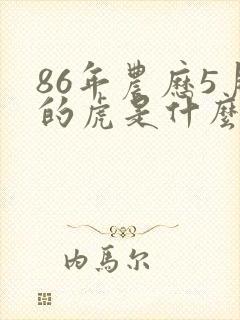 86年農歷5月
的虎是什麼
内馬尔